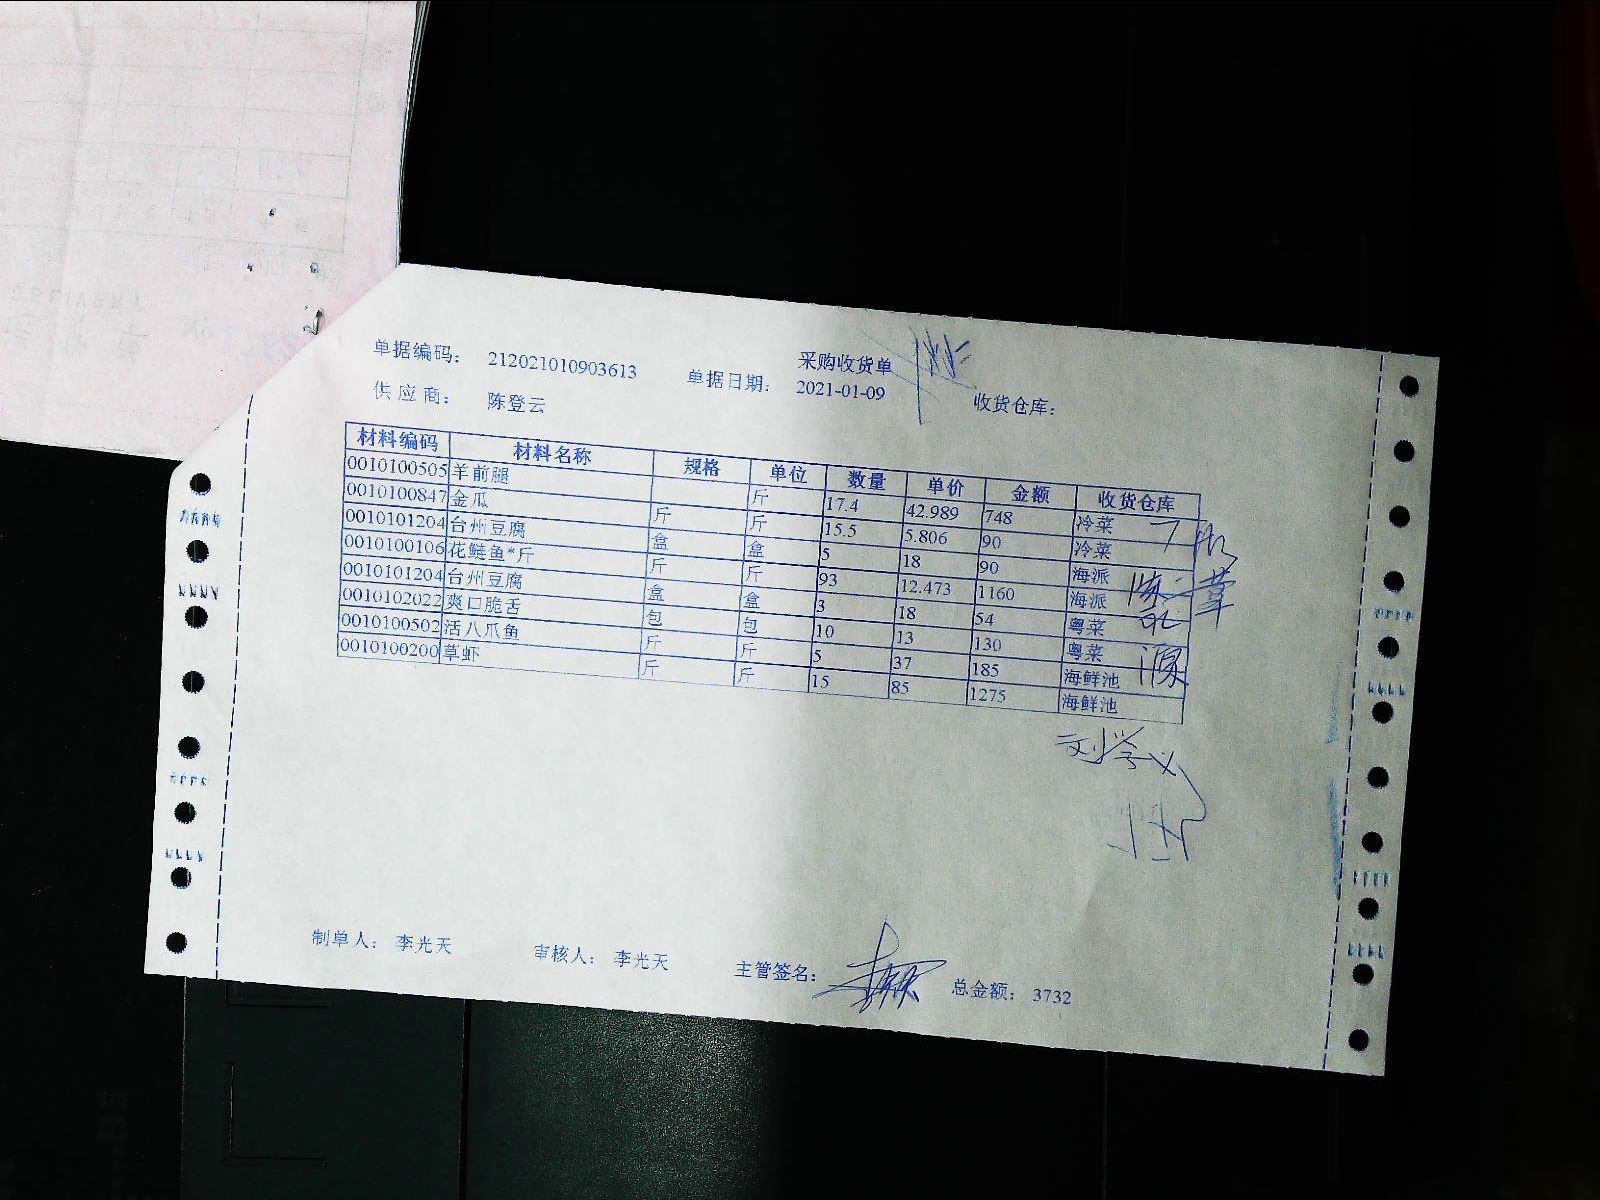 采购收货单
单据编码： 212021010903613 单据日期： 2021-01-09 收货仓库：
供应商： 陈登云
材料编码 材料名称 规格 单位 数量 单价 金额 收货仓库
0010100505 羊前腿 斤 17.4 42.989 748 冷菜
0010100847 金瓜 斤 斤 15.5 5.806 90 冷菜
0010101204 台州豆腐 盒 盒 5 18 90 海派
0010100106 花鲢鱼*斤 斤 斤 93 12.473 1160 海派
0010101204 台州豆腐 盒 盒 3 18 54 粤菜
0010102022 爽口脆舌 包 包 10 13 130 粤菜
0010100502 活八爪鱼 斤 斤 5 37 185 海鲜池
0010100200 草虾 斤 斤 15 85 1275 海鲜池
刘学义
制单人： 李光天 审核人： 李光天 主管签名： 总金额： 3732